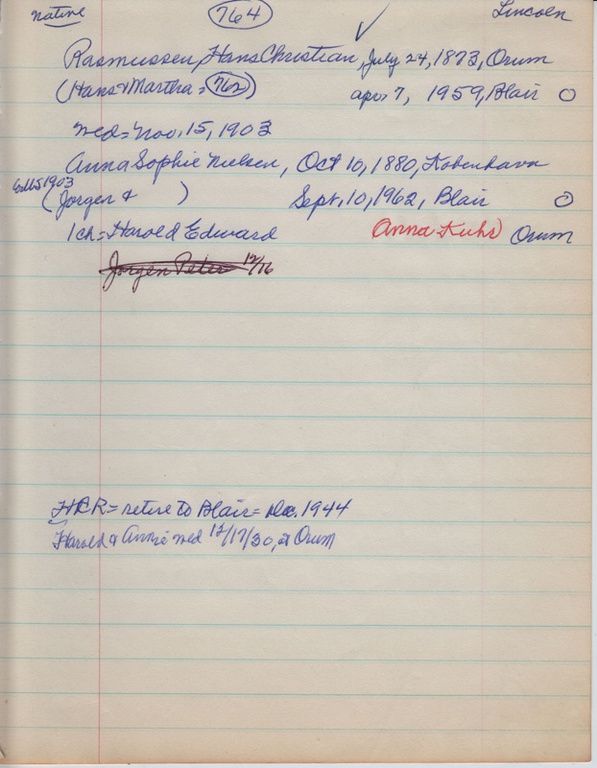 native 764 Lincoln
Rasmussen, Hans Christian, July 24, 1873, Orum
(Hans & Martha = 762) apr. 7, 1959, Blair O
wed = Nov. 15, 1903
Anna Sophie Nielsen, Oct 10, 1880, Kobenhavn
1903
(Jorgen & ) Sept. 10, 1962, Blair O
1 ch = Harold Edward Anna Kuhr Orum
Jorgen Peter 12/16
HCR = retire to Blair = Dec. 1944
Harold & Annie wed 12/17/30, at Orum